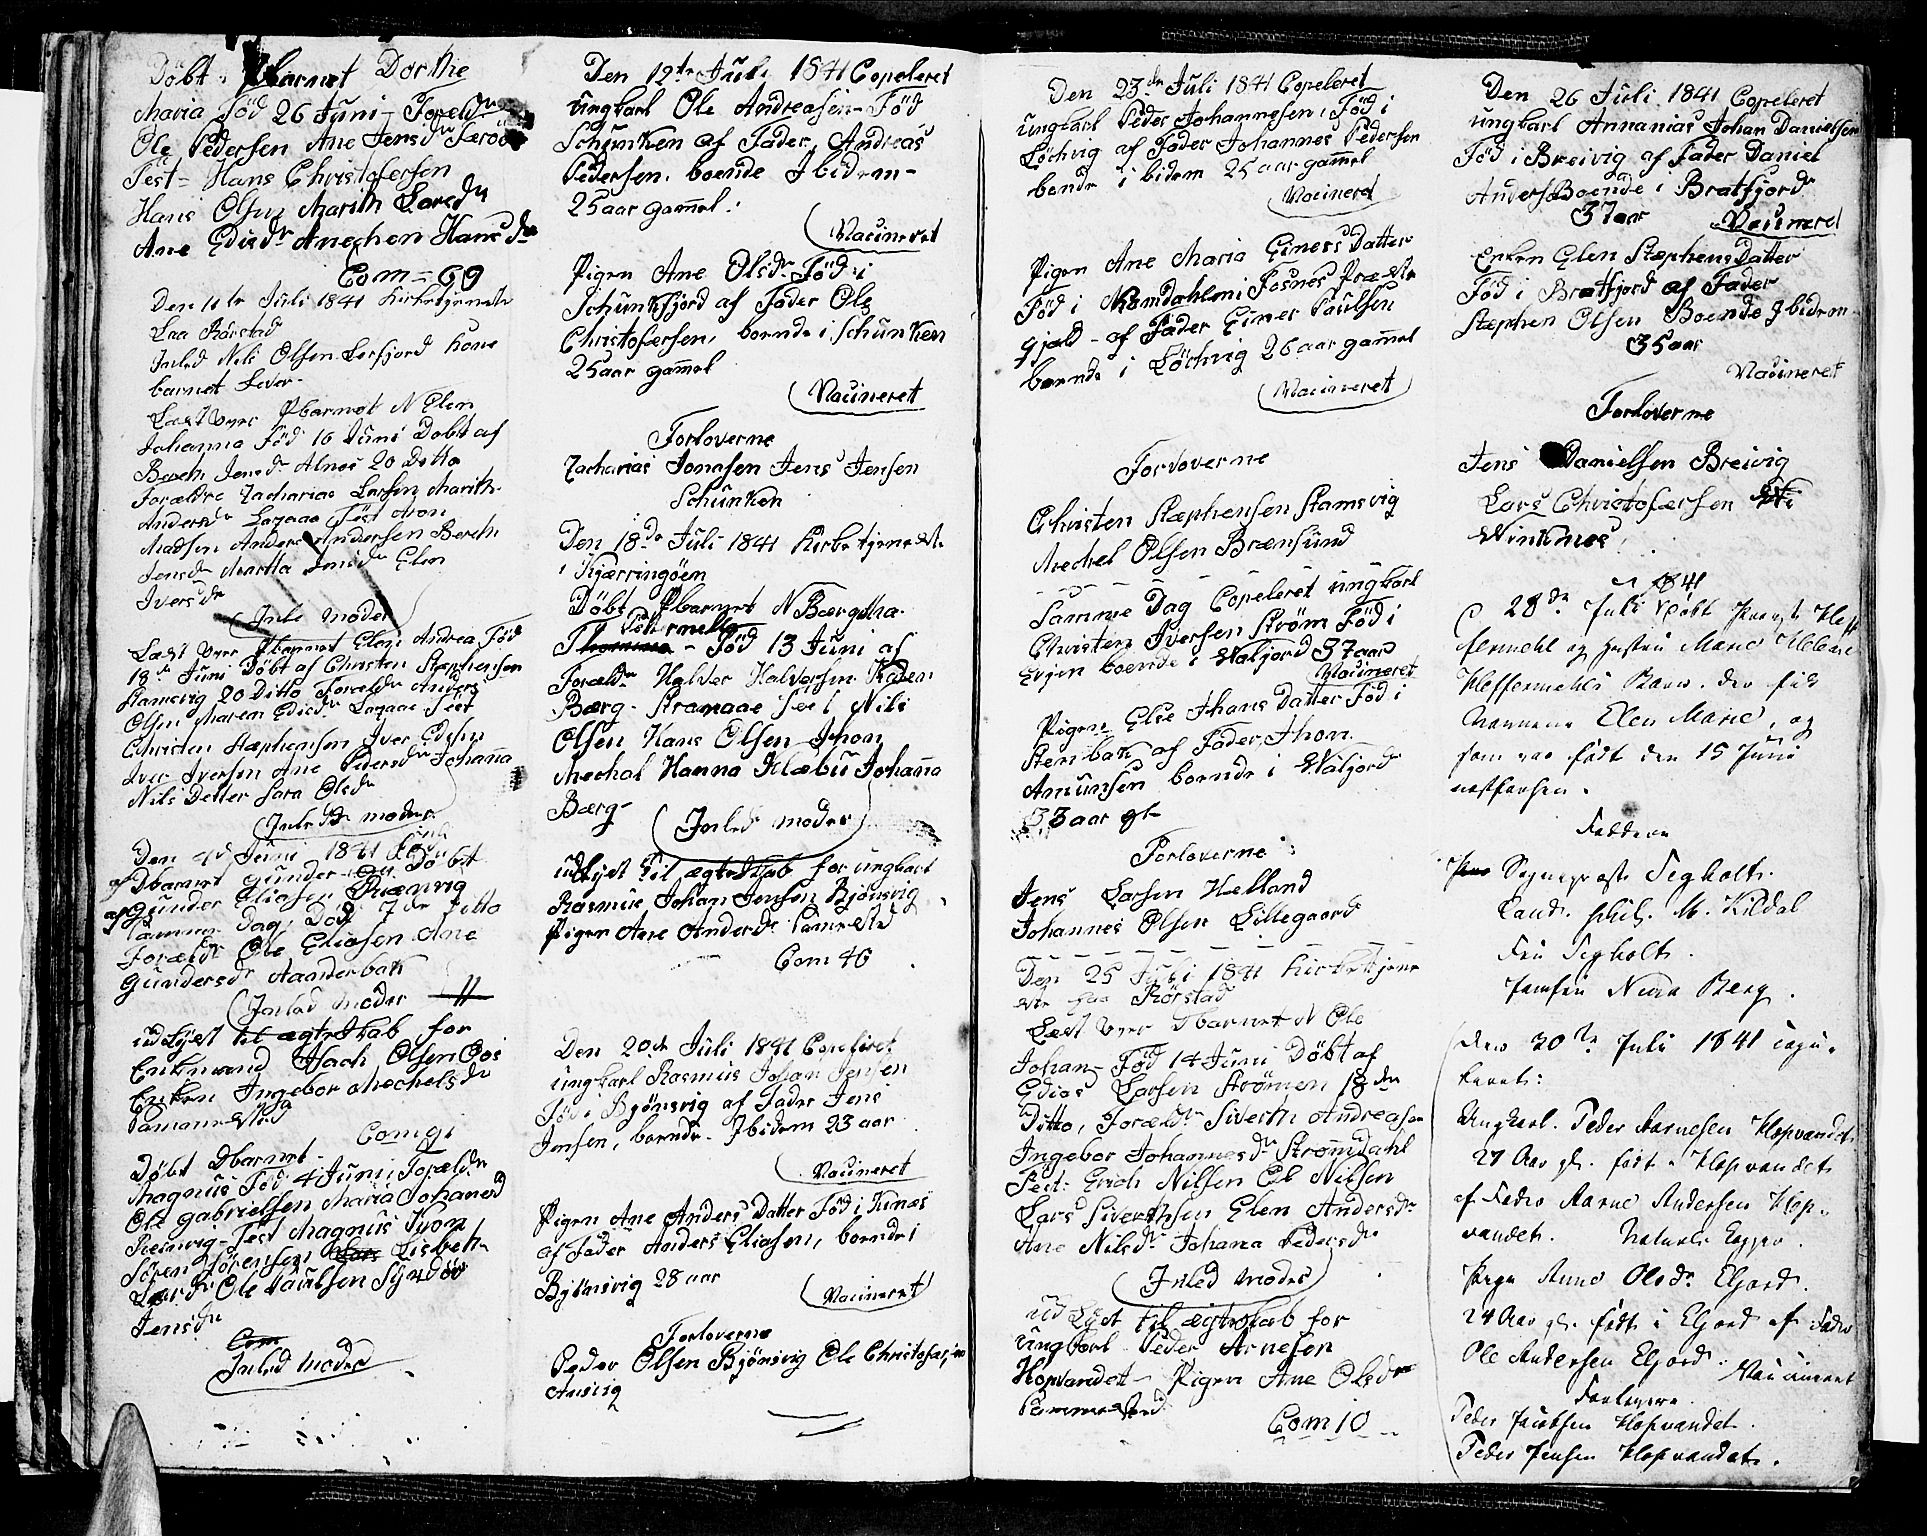 Döbt Pbarnet Dorthe
Maria Föd 26 Juni - Foræld
Ole Pedersen Ane Jensdr
Test = Hans Christofersen
Hans Olsen Marith Larsdr
Ane Edisdr Anechen Hansdr
Com = 69
Den 11te Juli 1841 Kirketjeneste
Rörstad
Inled Nils Olsen Lerfjord Kone
barnet Lever
Læst over Pbarnet N Elen
Johanna Föd 16 Juni Döbt af
Bereth Jensdr Alnes 20 Ditto
Forældre Zacharias Larsen Marith
Andersdr Test Aron
Madsen Anders Andersen Bereth
Jensdr Martha Jensdr Elen
Iversdr
Inle moder
Læst over Pbarnet Elen Andrea Föd
18de Juni Döbt af Christen Stæphensen
Stamsvig 20 Ditto Foreldr Anders
Olsen Maren Edisdr Test
Christen Stæphensen Iver Edisen
Iver Iversen Ane Pedersdr Johanna
Nils Detter Sara Olsdr
Inledt moder
Den 4de Juni 1841 Föd
Dbarnet Gunder Döbt
af Gunder Eliasen
Samme Dag, Död 7de Ditto
Foræld Ole Eliasen Ane
Gundersdr Aanderbak
Inled moder
udlyst til ægteskab for
Enkmand Olsen
Enken Ingebor Mechelsdr
Sammested
Com 91
Döbt Dbarnet
Magnus Föd 4 Juni, Foreldr
Ole Gabrielsen Maria Johansd
Reinvig - Test Magnus
Sören Sörensen Lisbeth
Larsdr Ole Paulsen
Jensdr
Com
Inled moder
Den 12te Juli 1841 Copeleret
ungkarl Ole Andreasen - Föd
Schunken af Fader, Andreas
Pedersen. boende Ibidem -
25 aar gammel.
Vacineret
Pigen Ane Olsdr Föd i
Schunkfjord af Fader Ole
Christofersen, boende i Schunken
25 aar gammel
Vacineret
Forloverne
Zacharias Jonasen Jens Jensen
Schunken
Den 18de Juli 1841 Kirketjeneste
i Kjærringöen
Döbt Pbarnet N Bergitha
Petternelle
- Föd 13 Juni af
Foreldr Halver Halversen Karen
Bærg - Nils
Olsen Hans Olsen Jhon
Mechal Hanna Klæbu Johanna
Bærg -
Inled moder
udlyst til ægteskab for ungkarl
Rasmus Johan Jensen Bjönsvig
Pigen Ane Andersdr Sammested
Com 46
Den 20de Juli 1841 Copeleret
ungkarl Rasmus Johan Jensen
Föd i Bjönsvig af Fader Jens
Jensen, boende Ibidem 23 aar
Vacineret
Pigen Ane Anders Datter Föd i Tunæs
af Fader Anders Eliasen, boende i
Bjönsvig 28 aar
Vacineret
Forloverne
Peder Olsen Bjönsvig Ole Christofersen
Ansvig
Den 23de Juli 1841 Copeleret
ungkarl Peder Johannesen, Föd i
Löchvig af Fader Johannes Pedersen
bende ibidem 25 aar gammel
Vacineret
Pigen Ane Maria Einers Datter
Föd i Namdahlen i Fosnes Præste
gjæld - af Fader Einer Paulsen
boende i Löchvig 26 aar gammel
Vacineret
Forloverne
Christen Stæphensen Stamsvig
Mechel Olsen Brænsund
Samme Dag Copeleret ungkarl
Christen Iversen Ström Föd i
Evjen boende i Valjord 37 aar
Vacineret
Pigen Else Jhans Datter Föd i
Stenbak af Fader Jhon
Amunsen boende i Valjord
33 aar gl
Forloverne
Jens Larsen Helland
Johannes Olsen Lillegaard
Den 25 Juli 1841 Kirketjene
ste paa Rörstad
Læst over Dbarnet N Ole
Johan - Föd 14 Juni Döbt af
Edias Larsen Strömen 18de
Ditto, Foreldr Siverth Andreasen
Ingebor Johannesdr Strömdahl
Test: Erich Nilsen Ol Nilsen
Lars Siverthsen Elen Andersdr
Ane Nilsdr Johana Pedersdr
Inled moder
udlyst til ægteskab for
ungkarl Peder Arnesen
Hopvandet - Pigen Ane Olsdr
Sammested
Com 10
Den 26 Juli 1841 Copeleret
ungkarl Annanias Johan Danielsen
Föd i Breivig af Fader Daniel
Anders Boende i Bratfjord
37 aar Vacineret
Enken Elen Stæphens Datter
Föd i Bratfjord af Fader
Stæphen Olsen Boende Ibidem
35 aar
Vacineret
Forloverne
Jens Danielsen Breivig
Lars Christofersen
Vinknes
1841
28de Juli döbt Præst Heff
ermehl og Hustru Marie Helene
Heffermehls Barn, der fik
Navnene Elen Marie, og
som var født den 15 Juni
næstforhen.
Faddere
Sogneprest Tegholt.
Cand. phil. M. Kildal
Fru Tegholt.
Jomfru Nina Berg.
Den 30te Juli 1841 copu-
leret:
Ungkarl. Peder Aarnesen Hopvandet
27 Aar gl. født i Hopvandet
af Fader Aarne Andersen Hop-
vandet. Naturl: Kopper.
Pige Anne Olsdr Eljord.
24 Aar gl. født i Eljord af Fader
Ole Andersen Eljord. Vaccineret
Forlovere
Peder Jacobsen Hopvandet.
Peder Jensen Hopvandet.